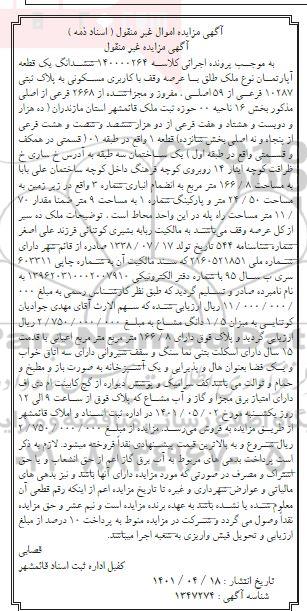 آگهی مزایده اموال غیر منقول ( اسناد ذمه )
آگهی مزایده غیر منقول
به موجب پرونده اجرائی کلاسه ۱۴۰۰۰۰۲۶۴ ششدانگ یک قطعه
آپارتمان نوع ملک طلق بسا عرصه وقف با کاربری مسکونی به پلاک ثبتی
۱۰۲۸۷ فرعی از ۵۹ اصلی . مفروز و مجزا شده از ۲۶۶۸ فرعی از اصلی
مذکور بخش ۱۶ ناحیه ۰۰ حوزه ثبت ملک قائمشهر استان مازندران ( ده هزار
و دویست و هشتاد و هفت فرعی از
از پنجاه و نه اصلی بخش شانزده) قطعه ۱ واقع در طبقه ۱۰ ( قسمتی در همکف
و قسمتی واقع در طبقه اول ) یک ساختمان سه طبقه به آدرس خ ساری خ
ظرافت کوچه ایثار ۱۴ روبروی کوچه فرهنگ داخل کوچه ساختمان علی بابا
به مساحت ۱۶۶/۸ متر مربع به انضمام انباری شماره ۳ واقع در زیر زمین به
مساحت ۲۴/۵۰ متر و پارکینگ شماره ۱ به مساحت ۹ متر ضمنا مقدار ۷۰
/ ۱۱ متر مساحت راه پله در این واحد محاط است . توضیحات ملک ده سیر
از کل عرصه وقف می باشد به مالکیت ربابه بشیری کوتنائی فرزند علی اصغر
شماره شناسنامه ۵۴۴ تاریخ تولد ۱۷ / ۰۷ / ۱۳۳۸ صادره از قائم شهر دارای
کد ملی ۲۱۶۰۵۲۱۸۵۱ که سند مالکیت آن به شماره چاپی ۶۰۳۳۱۱
سری ب سال ۹۵ با شماره دفتر الکترونیکی ۱۳۹۶۲۰۳۱۰۰۰۲۰۰۷۹۱۰ به
نام نامبرده صادر و تسلیم گردید که طبق نظر کارشناس رسمی به مبلغ ۰۰۰
/ ۰۰۰ / ۰۰۰ / ۱۱ ریال ارزیابی شده که سهم الارث آقای مهدی جوادیان
کوتنایی به میزان ۱/۵ دانگ مشاع به مبلغ ۰۰۰ / ۰۰۰ / ۷۵۰ / ۲ ریال
ارزیابی گردید و پلاک فوق دارای ۱۶۶/۸ متر مربع متر مربع اعیانی با قدمت
۱۵ سال دارای اسکلت بتنی نما سنگ و سقف شیروانی دارای سه اتاق خواب
و یک فضا بعنوان هال و پذیرایی و یک آشپزخانه به صورت باز و مطبخ و
حمام و توالت می باشد کف سرامیک و پوشش دیواره از گچ کابینت ام دی اف
دارای امتیاز برق مجزا و گاز و آب مشاع که پلاک فوق از ساعت ۹ الی ۱۲
روز یکشنبه مورخ ۰۲ / ۰۵ / ۱۴۰۱ در اداره ثبت اسناد و املاک قائمشهر
از طریق مزایده به فروش می رسد. مزایده از مبلغ ۰۰۰ / ۰۰۰ / ۷۵۰ / ۲
ریال شروع و به بالاترین قیمت پیشنهادی نقدا فروخته میشود. لازم به ذکر
است پرداخت بدهی های مربوط به آب برق گاز اعم از حق انشعاب و یا حق
اشتراک و مصرف در صورتی که مورد مزایده دارای آنها باشد و نیز بدهی های
مالیاتی و عوارض شهرداری و غیره تا تاریخ مزایده اعم از اینکه رقم قطعی آن
معلوم شده یا نشده باشد به عهده برنده مزایده است و نیم عشر و حق مزایده
نقدا وصول می گردد و شرکت در مزایده منوط به پرداخت ۱۰ درصد از مبلغ
ارزیابی و تحویل فیش واریزی به شعبه اجرا میباشد
قصابی
کفیل اداره ثبت اسناد قائمشهر
تاریخ انتشار : ۱۸ / ۰۴ / ۱۴۰۱
شناسه آگهی : ۱۳۴۷۲۷۴